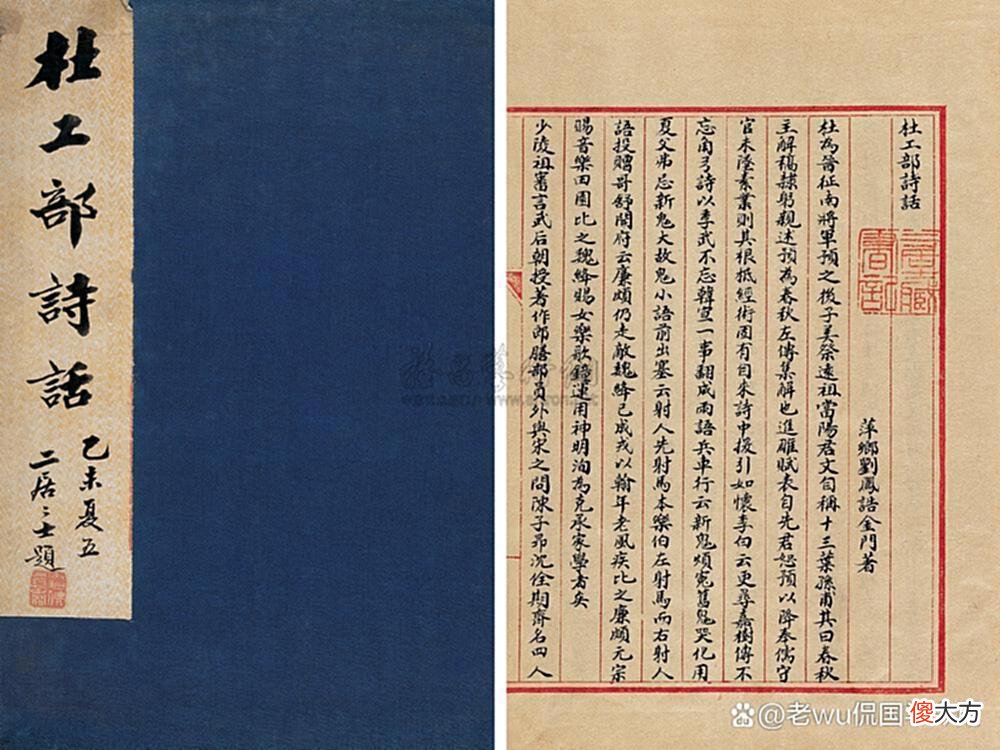 杜工部詩話
乙未夏五
二居士題
杜工部詩話
萍鄉劉鳳誥金門著
杜為晉征南將軍預之後子美祭遠祖當陽君文自稱十三葉孫甫其曰春秋
主解稿隸躬親述預為春秋左傳集解也進雕賦表自先君恕預以降奉儒守
官未墜素業則其根柢經術固有自來詩中援引如懷李白云更尋嘉樹傳不
忘角弓詩以季武不忘韓宣一事翻成兩語兵車行云新鬼煩冤舊鬼哭化用
夏父弗忌新鬼大故鬼小語前出塞云射人先射馬本樂伯左射馬而右射人
語投贈哥舒開府云廉頗仍走敵魏絳已成戎以翰年老風疾比之廉頗元宗
賜音樂田園比之魏絳賜女樂歌鐘運用神明洵為克承家學者矣
少陵祖審言武后朝授著作郎膳部員外與宋之問陳子昂沈佺期齊名四人
@老wu侃国
傻大方